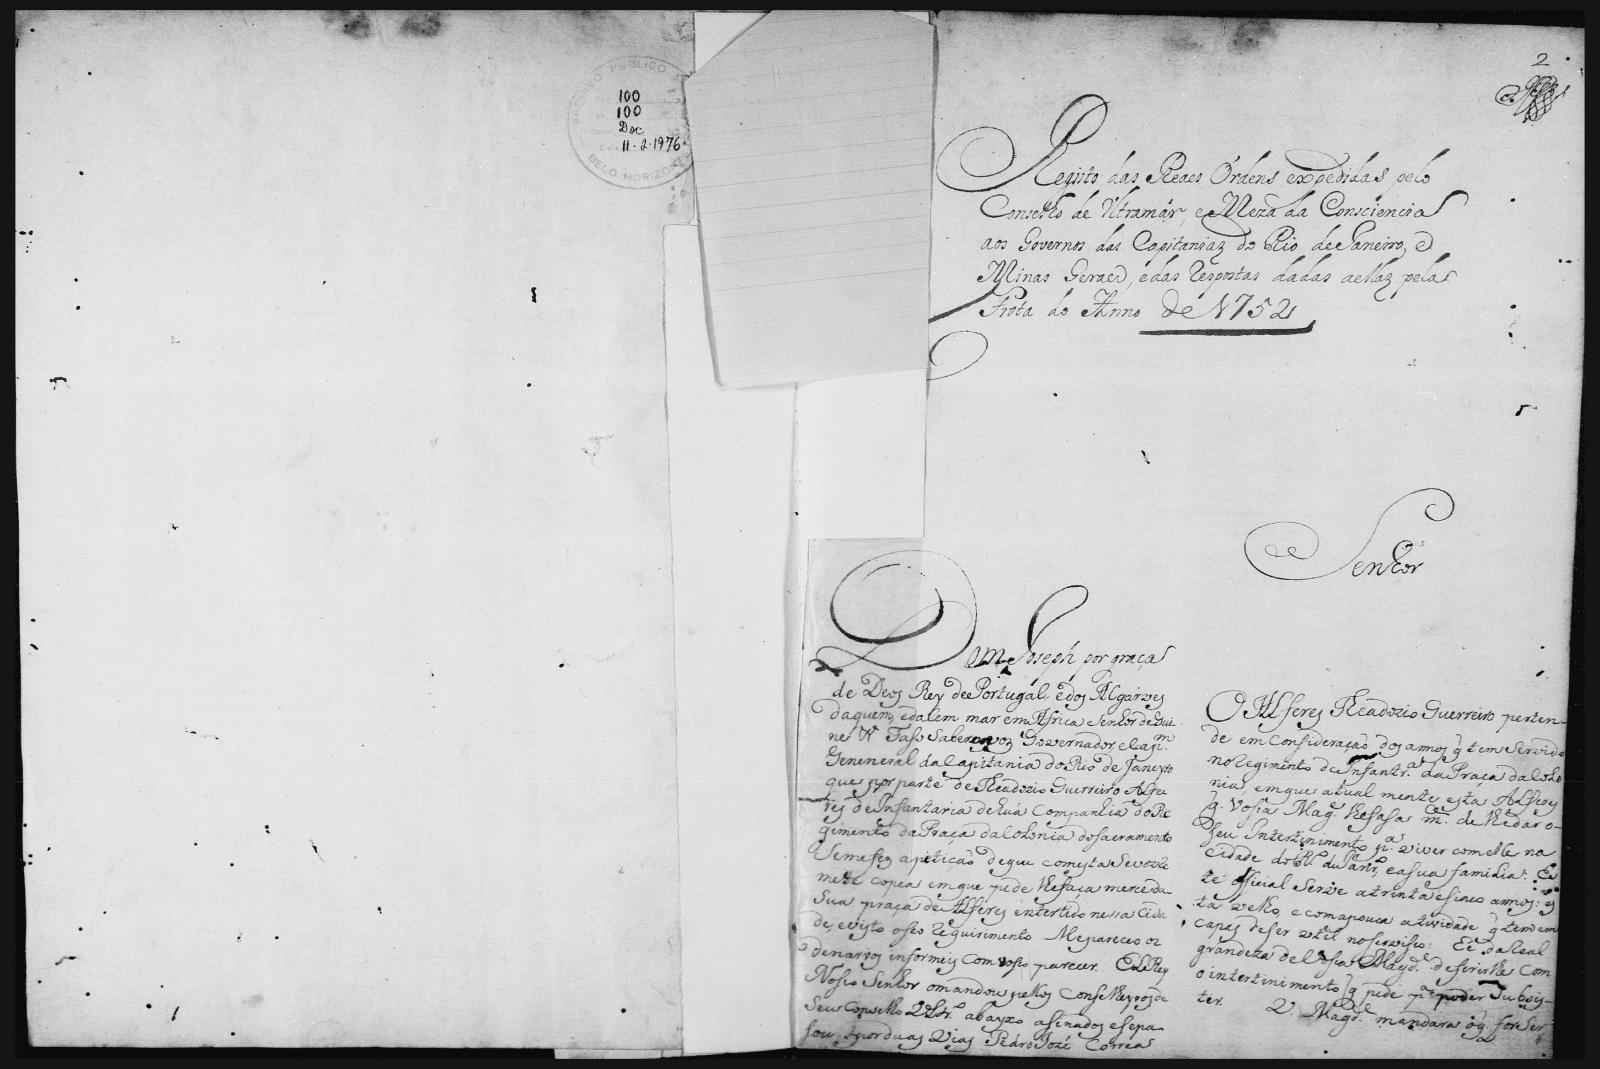 ARQUIVO PUBLICO
BELO HORIZONTE
100
100
Doc
11-2-1976
2
Registo das Reaes Ordens expedidas pelo
Conselho de Vltramár, e Meza da Consciencia
aos Governos das Capitanias do Rio de Janeiro, e
Minas Geraes, e das respostas dadas a ellas pela
Frota do Anno de 1752
Senhor
Dom Joseph por graça
de Deos Rey de Portugál, e dos Algarves
daquem, e dalem mar em Africa Senhor de Gui-
ne &ª Faço saber a vos Governador, e Cap.m
Geneneral da Capitania do Rio de Janeyro
que por parte de Theadozio Guerreiro Alfe-
res de Infantaria de huá Companhia do Re
gimento da Praça da Colonia do Sacramento
Se me fez a petição de que com esta se vos re
mete copea em que pede lhe faça merce da
Sua praça de Alferes entertido nessa Cida
de, e visto o seo requirimento Me pareceo or
denarvos informeis com vosso parecer. ElRey
Nosso Senhor o mandou pellos Conselheyros de
Seu Conselho Ultr.º abayxo asinados e se pa-
sou por duas vias Pedro Jozé Correa
O Alferes Theadozio Guerreiro perten-
de em Consideração dos annos q̃ tem servido
no Regimento de Infantr.ª da Praça da Colo
nia, em que atual mente esta Alferes
q̃. Vossa Mag.e lhe fasa m.ce de lhe dar o
seu Intertinimento p.ª viver com elle na
Cidade do R.º du Janr.º, e a sua familia: Es
te official serve a trinta e sinco annos: es
ta velho, e com a pouca atividade q̃ tendem
capas de ser util no servisso: He da Real
grandeza de Vossa Magd.e deferirlhe com
o intertinimento q̃ pede p.ª poder Subsis-
ter. V. Magd.e mandara o q̃. for Ser